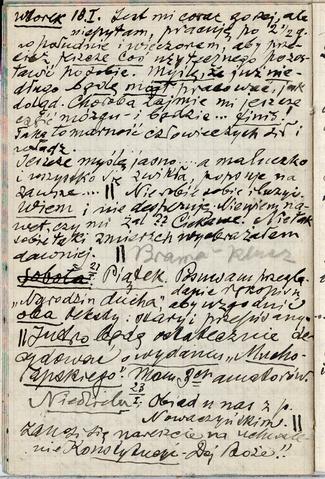 Wtorek 18.I. Jest mi coraz gorzej, ale
nie pytam, pracuję po 2 1/2 g.
w południe i wieczorem, aby prze-
cież jeszcze coś użytecznego pozos-
tawić po sobie. Myślę, że już nie-
długo będę mógł pracować, jak
dotąd. Choroba zajmie mi jeszcze
część mózgu - i będzie... finis!
Taka to marność człowieczych sił i
Jeszcze myślę jasno... a maluczko
i wszystko się zwikła, popsuje na
zawsze... || Nie robię sobie iluzyi.
Wiem i nie desperuję. Nie wiem na-
wet, czy mi żal?? Ciekawe. Nie tak
sobie taki zmierzch wyobrażałem
dawniej. || Brama - klucz
Sobota 21 Piątek. Porwałem przeglą-
"Narodzin ducha", aby uzgodnić
oba teksty: stary i przepisany.
|| Jutro będę ostatecznie de-
cydować o wydaniu "Mucho-
łapskiego". Mam 3ch amatorów.
Niedziela 23 I. Obiad u nas z p.
Nowaczyńskim. ||
Zanosi się nareszcie na uchwale-
nie Konstytucji. Daj Boże!!